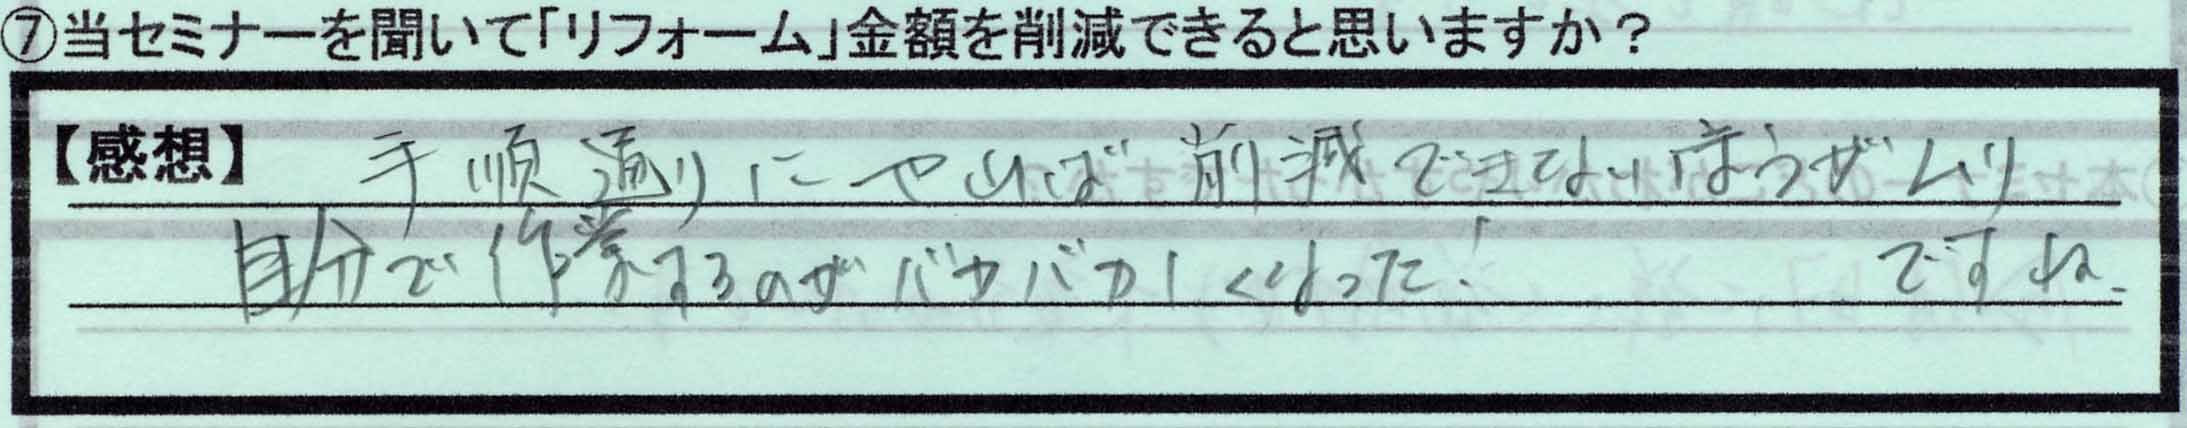 ⑦当セミナーを聞いて「リフォーム」金額を削減できると思いますか？
【感想】 手順通りにやれば削減できないほうがムリ
ですね.
自分で作業するのがバカバカしくなった!